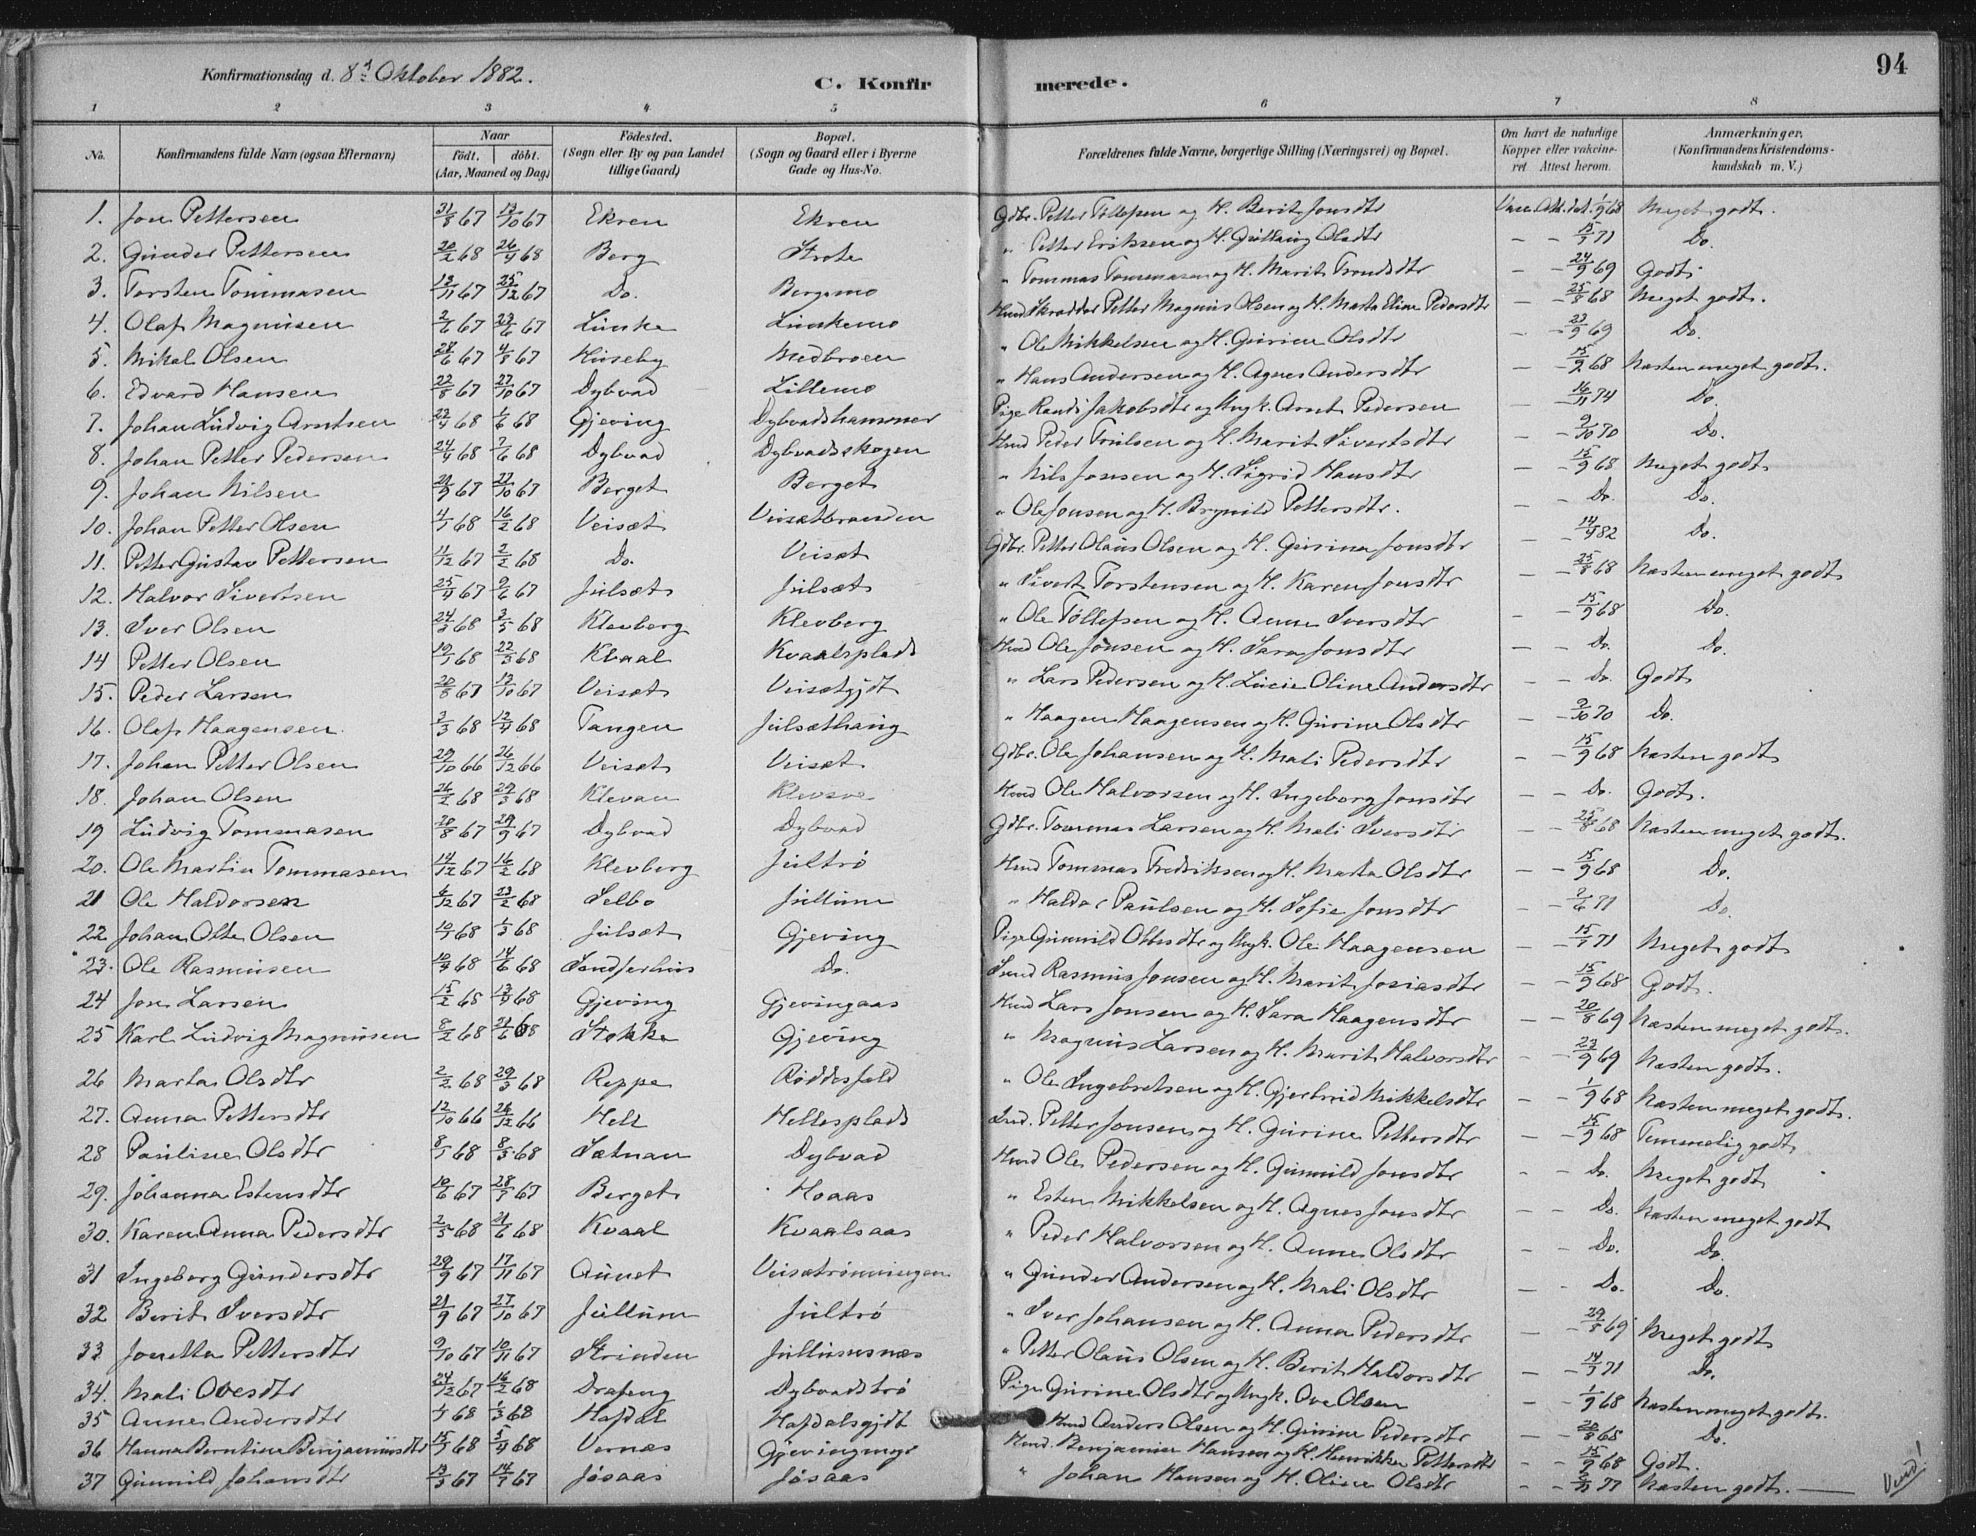 Konfirmationsdag d. 8de Oktober 1882.
C. Konfirmerede.
94
1 2 3 4 5 6 7 8
No. Konfirmandens fulde Navn (ogsaa Efternavn) Naar født. døbt. (Aar, Maaned og Dag) Fødested. (Sogn eller By og paa Landet tillige Gaard) Bopæl. (Sogn og Gaard eller i Byerne Gade og Hus-No. Forældrenes fulde Navne, borgerlige Stilling (Næringsvei) og Bopæl. Om havt de naturlige Kopper eller vakcineret. Attest herom. Anmærkninger. (Konfirmandens Kristendomskundskab m. V.)
1. Jon Pettersen 31/8 67 13/10 67 Ekren Ekren Gdbr. Petter Tollefsen og H. Berit Jonsdtr Vacc. Att. dat. 1/9 68 Meget godt.
2. Gunder Pettersen 20/2 68 26/4 68 Berg Strote " Petter Eriksen og H. Olsdtr - - 71 Do.
3. Torsten Tommasen 12/11 67 25/12 67 Do. Bergsmo " Tommas Tommasen og H. Marit Trondsdtr - - 24/9 69 Godt
4. Olaf Magnusen 2/6 67 23/6 67 Linske Linskemo Husmd Skrædder Petter Magnus Olsen og H. Marta Eline Pedersdtr - - 25/8 68 Meget godt.
5. Mikal Olsen 28/6 67 4/8 67 Huseby Medbroen " Ole Mikkelsen og H. Gurine Olsdtr - - 23/9 69 Do.
6. Edvard Hansen 22/8 67 27/10 67 Dybvad Lillemo " Hans Andersen og H. Agnes Andersdtr - - 15/9 68 Næsten meget godt.
7. Johan Ludvig Arntsen 22/4 68 1/6 68 Gjeving Dybvadshammer Pige Randi Jakobsdtr og Ungk. Arnt Pedersen - - 16/11 74 Do.
8. Johan Petter Pedersen 24/4 68 7/6 68 Dybvad Dybvadsskogen Husmd Peder Troilsen og H. Marit Sivertsdtr - - 9/10 70 Do.
9. Johan Nilsen 21/9 67 27/10 67 Berget Berget " Nils Jonsen og H. Sigrid Hansdtr - - 15/9 68 Meget godt
10. Johan Petter Olsen 4/1 68 16/2 68 Veisæt Veisætbranden " Ole Jonsen og H. Brynild Pettersdtr. - Do. Do.
11. Petter Gustav Pettersen 11/12 67 2/2 68 Do. Veisæt Gdbr. Petter Olaus Olsen og H. Gurina Jonsdtr - - 14/9 82 Do.
12. Halvor Sivertsen 25/4 67 9/6 67 Julsæt Julsæt " Sivert Torstensen og H. Karen Jonsdtr - - 25/8 68 Næsten meget godt
13. Iver Olsen 24/3 68 3/5 68 Klevberg Klevberg " Ole Tollefsen og H. Anne Iversdtr - - 15/9 68 Do.
14 Petter Olsen 10/1 68 22/3 68 Kvaal Kvaalsplads Husmd Ole Jonsen og H. Sara Jonsdtr - - Do. Do.
15. Peder Larsen 20/8 67 13/10 67 Veisæt Veisætgjdt " Lars Pedersen og H. Lucie Oline Andersdtr - - Do. Godt
16. Olaf Haagensen 3/3 68 12/4 68 Tangen Julsæthaug " Haagen Haagensen og H. Gurine Olsdtr - - 9/10 70 Do.
17. Johan Petter Olsen 29/10 66 26/12 66 Veisæt Veisæt Gdbr. Ole Johansen og H. Mali Pedersdtr - - 15/9 68 Næsten godt
18. Johan Olsen 26/2 68 29/3 68 Klevan Husmd Ole Halvorsen og H. Ingeborg Jonsdtr - - Do. Godt.
19 Ludvig Tommasen 20/8 67 29/9 67 Dybvad Dybvad Gdbr. Tommas Larsen og H. Mali Iversdtr - - 25/8 68 Næsten meget godt.
20. Ole Martin Tommasen 14/12 67 16/2 68 Klevberg Jultrø Husmd Tommas Fredriksen og H. Marta Olsdtr - - 15/9 68 Do.
21 Ole Haldorsen 6/12 67 23/2 68 Selbo Jullum " Haldor Paulsen og H. Sofie Jonsdtr - - 2/6 71 Do.
22 Johan Otte Olsen 10/1 68 1/3 68 Julsæt Gjeving Pige Gunnild Ottesdtr og Ungk. Ole Haagensen - - 71 Meget godt
23. Ole Rasmusen 10/4 68 14/6 68 Sandferhus Do. Rasmus Jonsen og H. Marit Josiasdtr - - 15/9 68 Godt.
24 Jon Larsen 15/2 68 13/4 68 Gjeving Gjevingaas Husmd Lars Jonsen og H. Sara Haagensdtr - - 20/8 69 Næsten meget godt.
25 Karl Ludvig Magnusen 8/2 68 21/6 68 Stokke Gjeving " Magnus Larsen og H. Marit Halvorsdtr - - 23/9 69 Næsten godt.
26 Marta Olsdtr 2/2 68 29/3 68 Reppe Røddesfald " Ole Ingebretsen og H. Gjertrud Mikkelsdtr - - 1/9 68 Næsten meget godt.
27. Anna Pettersdtr 12/10 66 26/12 66 Hell Hellesplads Petter Jonsen og H. Gurine Pettersdtr - - 15/9 68 Temmelig godt
28 Pauline Olsdtr 8/1 68 8/3 68 Sætnan Dybvad Husmd Ole Pedersen og H. Gunnild Jonsdtr - - Do. Meget godt
29. Johanna Estensdtr 10/6 67 28/7 67 Berget Hoaas " Esten Mikkelsen og H. Agnes Jonsdtr - - Do. Næsten meget godt
30. Karen Anna Pedersdtr 2/5 68 21/6 68 Kvaal Kvaalsaas " Peder Halvorsen og H. Anne Olsdtr - - Do. Do.
31 Ingeborg Gundersdtr 29/9 67 17/11 67 Aunet Veisætrønningen " Gunder Andersen og H. Mali Olsdtr - Do. Do.
32 Berit Iversdtr 21/9 67 27/10 67 Jullum Jultrø " Iver Johansen og H. Anna Pedersdtr - - 29/8 69 Meget godt
33 Jonetta Pettersdtr 9/10 67 10/11 67 Strinden Jullumsnæs " Petter Olaus Olsen og H. Berit Haldorsdtr - - 71 Do.
34. Mali Ovesdtr 24/12 67 16/2 68 Draften Dybvadsbrø Pige Gurine Olsdtr og Ungk. Ove Olsen - - 1/9 68 Næsten meget godt.
35 Anne Andersdtr 68 1/3 68 Hafdal Hafdalsgjdt Husmd Anders Olsen og H. Gurine Pedersdtr - - 20/8 68 Do.
36 Hanna Berntine Benjaminsdtr 15/3 68 5/4 68 Vernæs Gjevingmyr Husmd. Benjamin Hansen og H. Henrikke Pettersdtr - - 15/9 68 Godt.
37 Gunnild Johansdtr 13/5 67 14/7 67 Jøsaas Jøsaas " Johan Hansen og H. Oline Olsdtr - - 77 Næsten godt.
Vend!